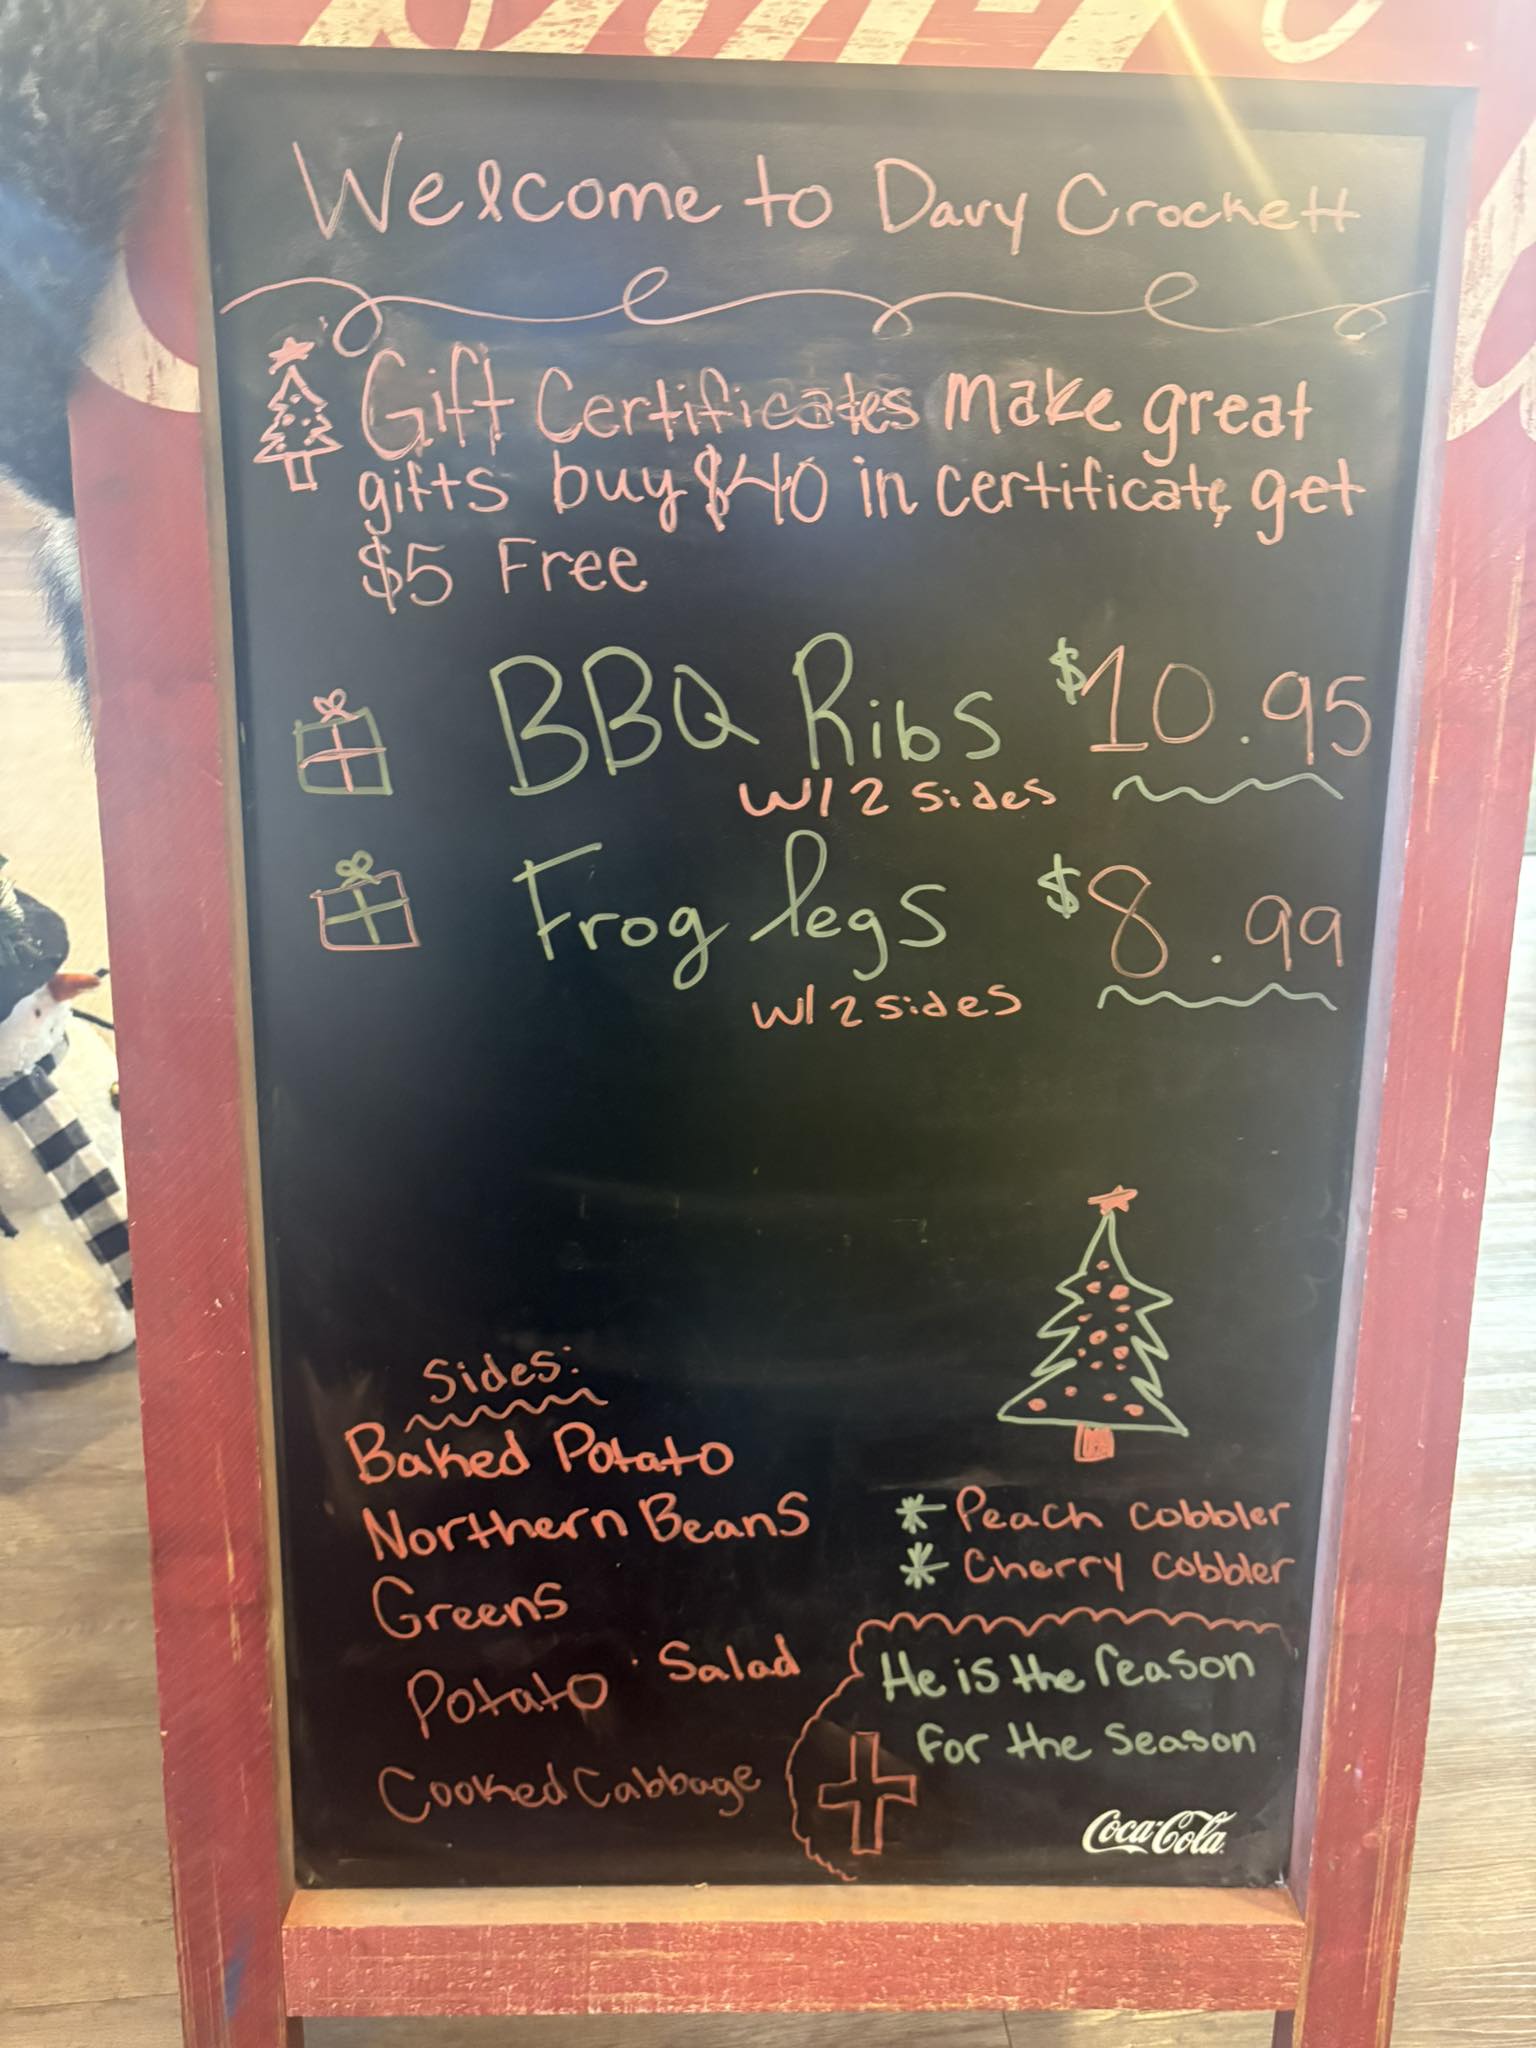 Welcome to Davy Crockett
Gift Certificates make great
gifts buy $40 in certificate, get
$5 Free
BBQ Ribs $10.95
W/ 2 sides
Frog legs $8.99
W/ 2 sides
Sides:
Baked Potato
Northern Beans
Greens
Potato Salad
Cooked Cabbage
* Peach cobbler
* Cherry cobbler
He is the reason
for the season
Coca-Cola